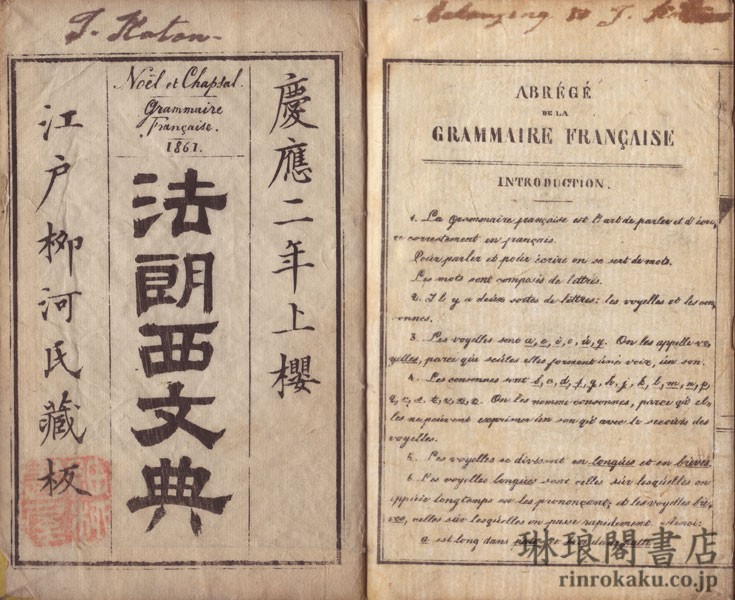 J. Katon
慶應二年上櫻
Noël et Chapsal.
Grammaire
Française.
1861.
法朗西文典
江戸柳河氏藏板
Belonging to J. Katon
ABRÉGÉ
DE LA
GRAMMAIRE FRANÇAISE
INTRODUCTION.
1. La Grammaire française est l'art de parler et d'écri-
re correctement en français.
Pour parler et pour écrire on se sert de mots.
Les mots sont composés de lettres.
2. Il y a deux sortes de lettres: les voyelles et les con-
sonnes.
3. Les voyelles sont a, e, i, o, u, y. On les appelle vo-
yelles, parce que seules elles forment une voix, un son.
4. Les consonnes sont b, c, d, f, g, h, j, k, l, m, n, p,
q, r, s, t, v, x, z. On les nomme consonnes, parce qu'el-
les ne peuvent exprimer un son qu'avec le secours des
voyelles.
5. Les voyelles se divisent en longues et en brèves.
6. Les voyelles longues sont celles sur lesquelles on
appuie longtemps en les prononçant; et les voyelles brè-
ves, celles sur lesquelles on passe rapidement. Ainsi:
a est long dans
琳琅閣書店
rinrokaku.co.jp